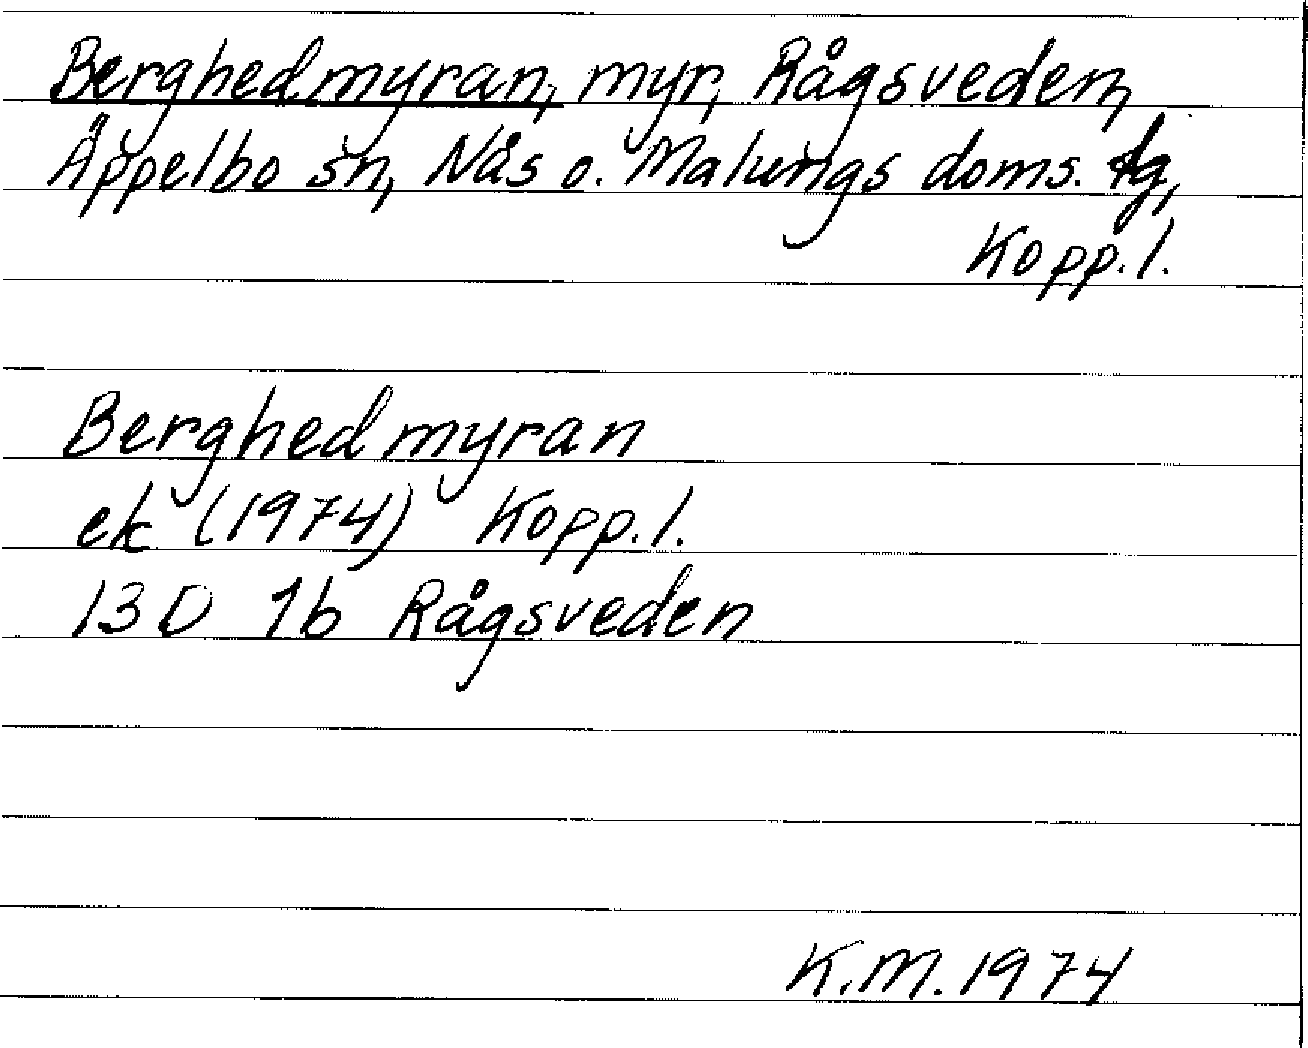 Berghedmyran, myr, Rågsveden,
Äppelbo sn, Nås o. Malungs doms. tg,
Kopp.l.
Berghedmyran
ek (1974) Kopp.l.
13D 1b Rågsveden
K.M. 1974